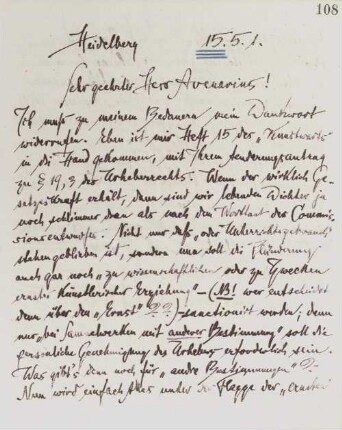 108
Heidelberg 15.5.1.
Sehr geehrter Herr Avenarius!
Ich muß zu meinem Bedauern mein Dankwort
widerrufen. Eben ist mir Heft 15 des „Kunstwarts"
in die Hand gekommen, mit Ihrem Änderungsantrag
zu § 19,3 des Urheberrechts. Wenn der wirklich Ge-
setzeskraft erhält, dann sind wir lebenden Dichter ja
noch schlimmer dran als nach dem Wortlaut des Commis-
sionsentwurfes. Nicht nur daß „oder Unterrichtsgebrauch"
stehen geblieben ist, sondern nun soll die Plünderung
auch gar noch „zu wissenschaftlichen oder zu Zwecken
ernster künstlerischer Erziehung" – (NB! wer entscheidet
denn über den „Ernst"??) – sanctioniert werden; denn
nur „bei Sammelwerken mit anderer Bestimmung" soll die
persönliche Genehmigung des Urhebers erforderlich sein.
Was giebt's denn noch für „andre Bestimmungen"?
Nun wird einfach Alles unter der Flagge der „ernsten